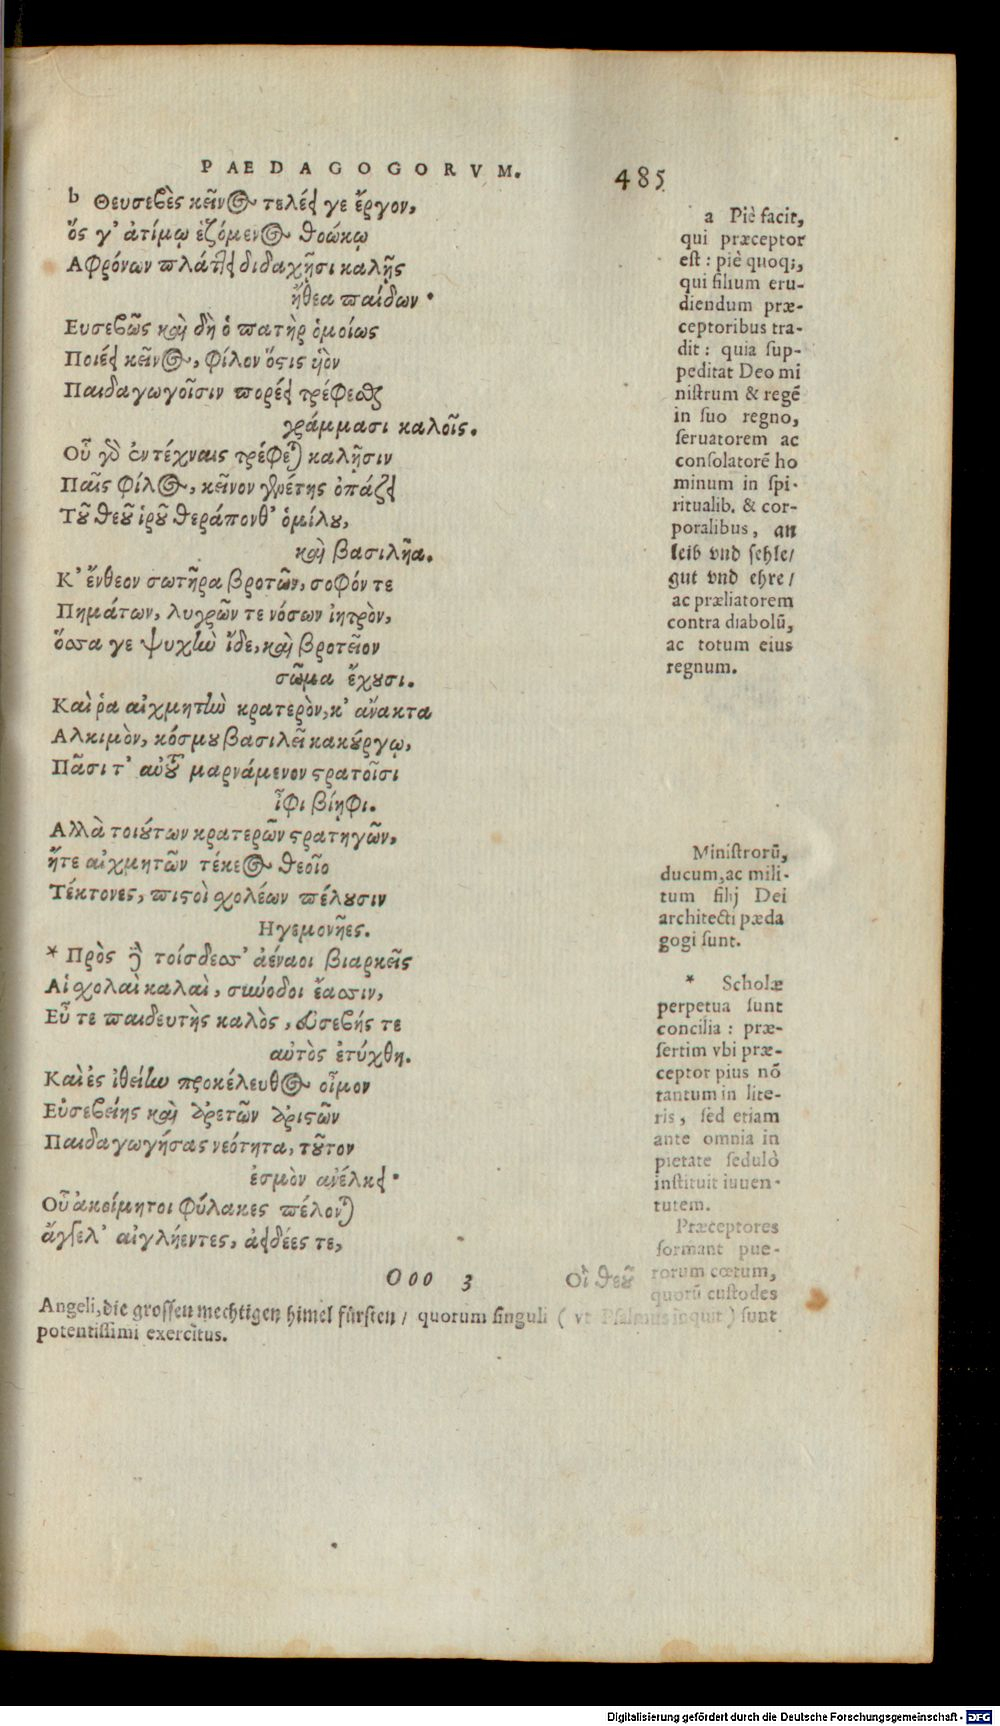 PAEDAGOGORVM. 485
b Θευσεβὲς κεῖνος τελέει γε ἔργον,
ὅς γ' ἀτίμῳ ἑζόμενος θοώκῳ
Αφρόνων πλάττει διδαχῇσι καλῇς
ἤθεα παίδων.
Ευσεβῶς καὶ δὴ ὁ πατὴρ ὁμοίως
Ποιέει κεῖνος, φίλον ὅστις ἱὸν
Παιδαγωγοῖσιν πορέει τρέφεσθαι
γράμμασι καλοῖς.
Οὗ γὸ ἐν τέχναις τρέφεται καλῇσιν
Παῖς φίλος, κεῖνον γὸ ἀρέτης ὀπάζει
Τοῦ θεοῦ ἱροῦ θεράπονθ' ὁμίλου,
καὶ βασιλῆα.
Κ' ἔνθεον σωτῆρα βροτῶν, σοφόν τε
Πημάτων, λυγρῶν τε νόσων ἰητρὸν,
ὅσσα γε ψυχὴν ἴδε, καὶ βροτεῖον
σῶμα ἔχουσι.
Καὶ ῥα αἰχμητὴν κρατερὸν, κ' ἄνακτα
Αλκιμὸν, κόσμου βασιλεῖ κακούργῳ,
Πᾶσι τ' αὐτοῦ μαρνάμενον στρατοῖσι
ἶφι βίηφι.
Αλλὰ τοιούτων κρατερῶν στρατηγῶν,
ἤτε αἰχμητῶν τέκεος θεοῖο
Τέκτονες, πιστοὶ σχολέων πέλουσιν
Ηγεμονῆες.
* Πρὸς δὲ τοίσδεσσ' ἀέναοι βιαρκεῖς
Αἱ σχολαὶ καλαὶ, σιωύοδοι ἔασσιν,
Εὖτε παιδευτὴς καλὸς, εὐσεβής τε
αὐτὸς ἐτύχθη.
Καὶ ἐς ἰθείην προκέλευθος οἶμον
Εὐσεβείης καὶ ἀρετῶν ἀρίστων
Παιδαγωγήσας νεότητα, τοῦτον
ἑσμὸν ἀνέλκει.
Οὗ ἀκοίμητοι φύλακες πέλονται
ἄγγελ' αἰγλήεντες, ἀειδέες τε,
Ooo 3 Οἳ θεοῦ
a Piè facit,
qui præceptor
est: piè quoq;,
qui filium eru-
diendum præ-
ceptoribus tra-
dit: quia sup-
peditat Deo mi
nistrum & regē
in suo regno,
seruatorem ac
consolatorē ho
minum in spi-
ritualib. & cor-
poralibus, an
leib vnd sehle/
gut vnd ehre/
ac præliatorem
contra diabolū,
ac totum eius
regnum.
Ministrorū,
ducum, ac mili-
tum filij Dei
architecti pæda
gogi sunt.
* Scholæ
perpetua sunt
concilia: præ-
sertim vbi præ-
ceptor pius nō
tantum in lite-
ris, sed etiam
ante omnia in
pietate sedulò
instituit iuuen-
tutem.
Præceptores
formant pue-
rorum cœtum,
quorū custodes
Angeli, die grossen mechtigen himel fürsten/ quorum singuli (vt Psalmus inquit) sunt
potentissimi exercitus.
Digitalisierung gefördert durch die Deutsche Forschungsgemeinschaft - DFG